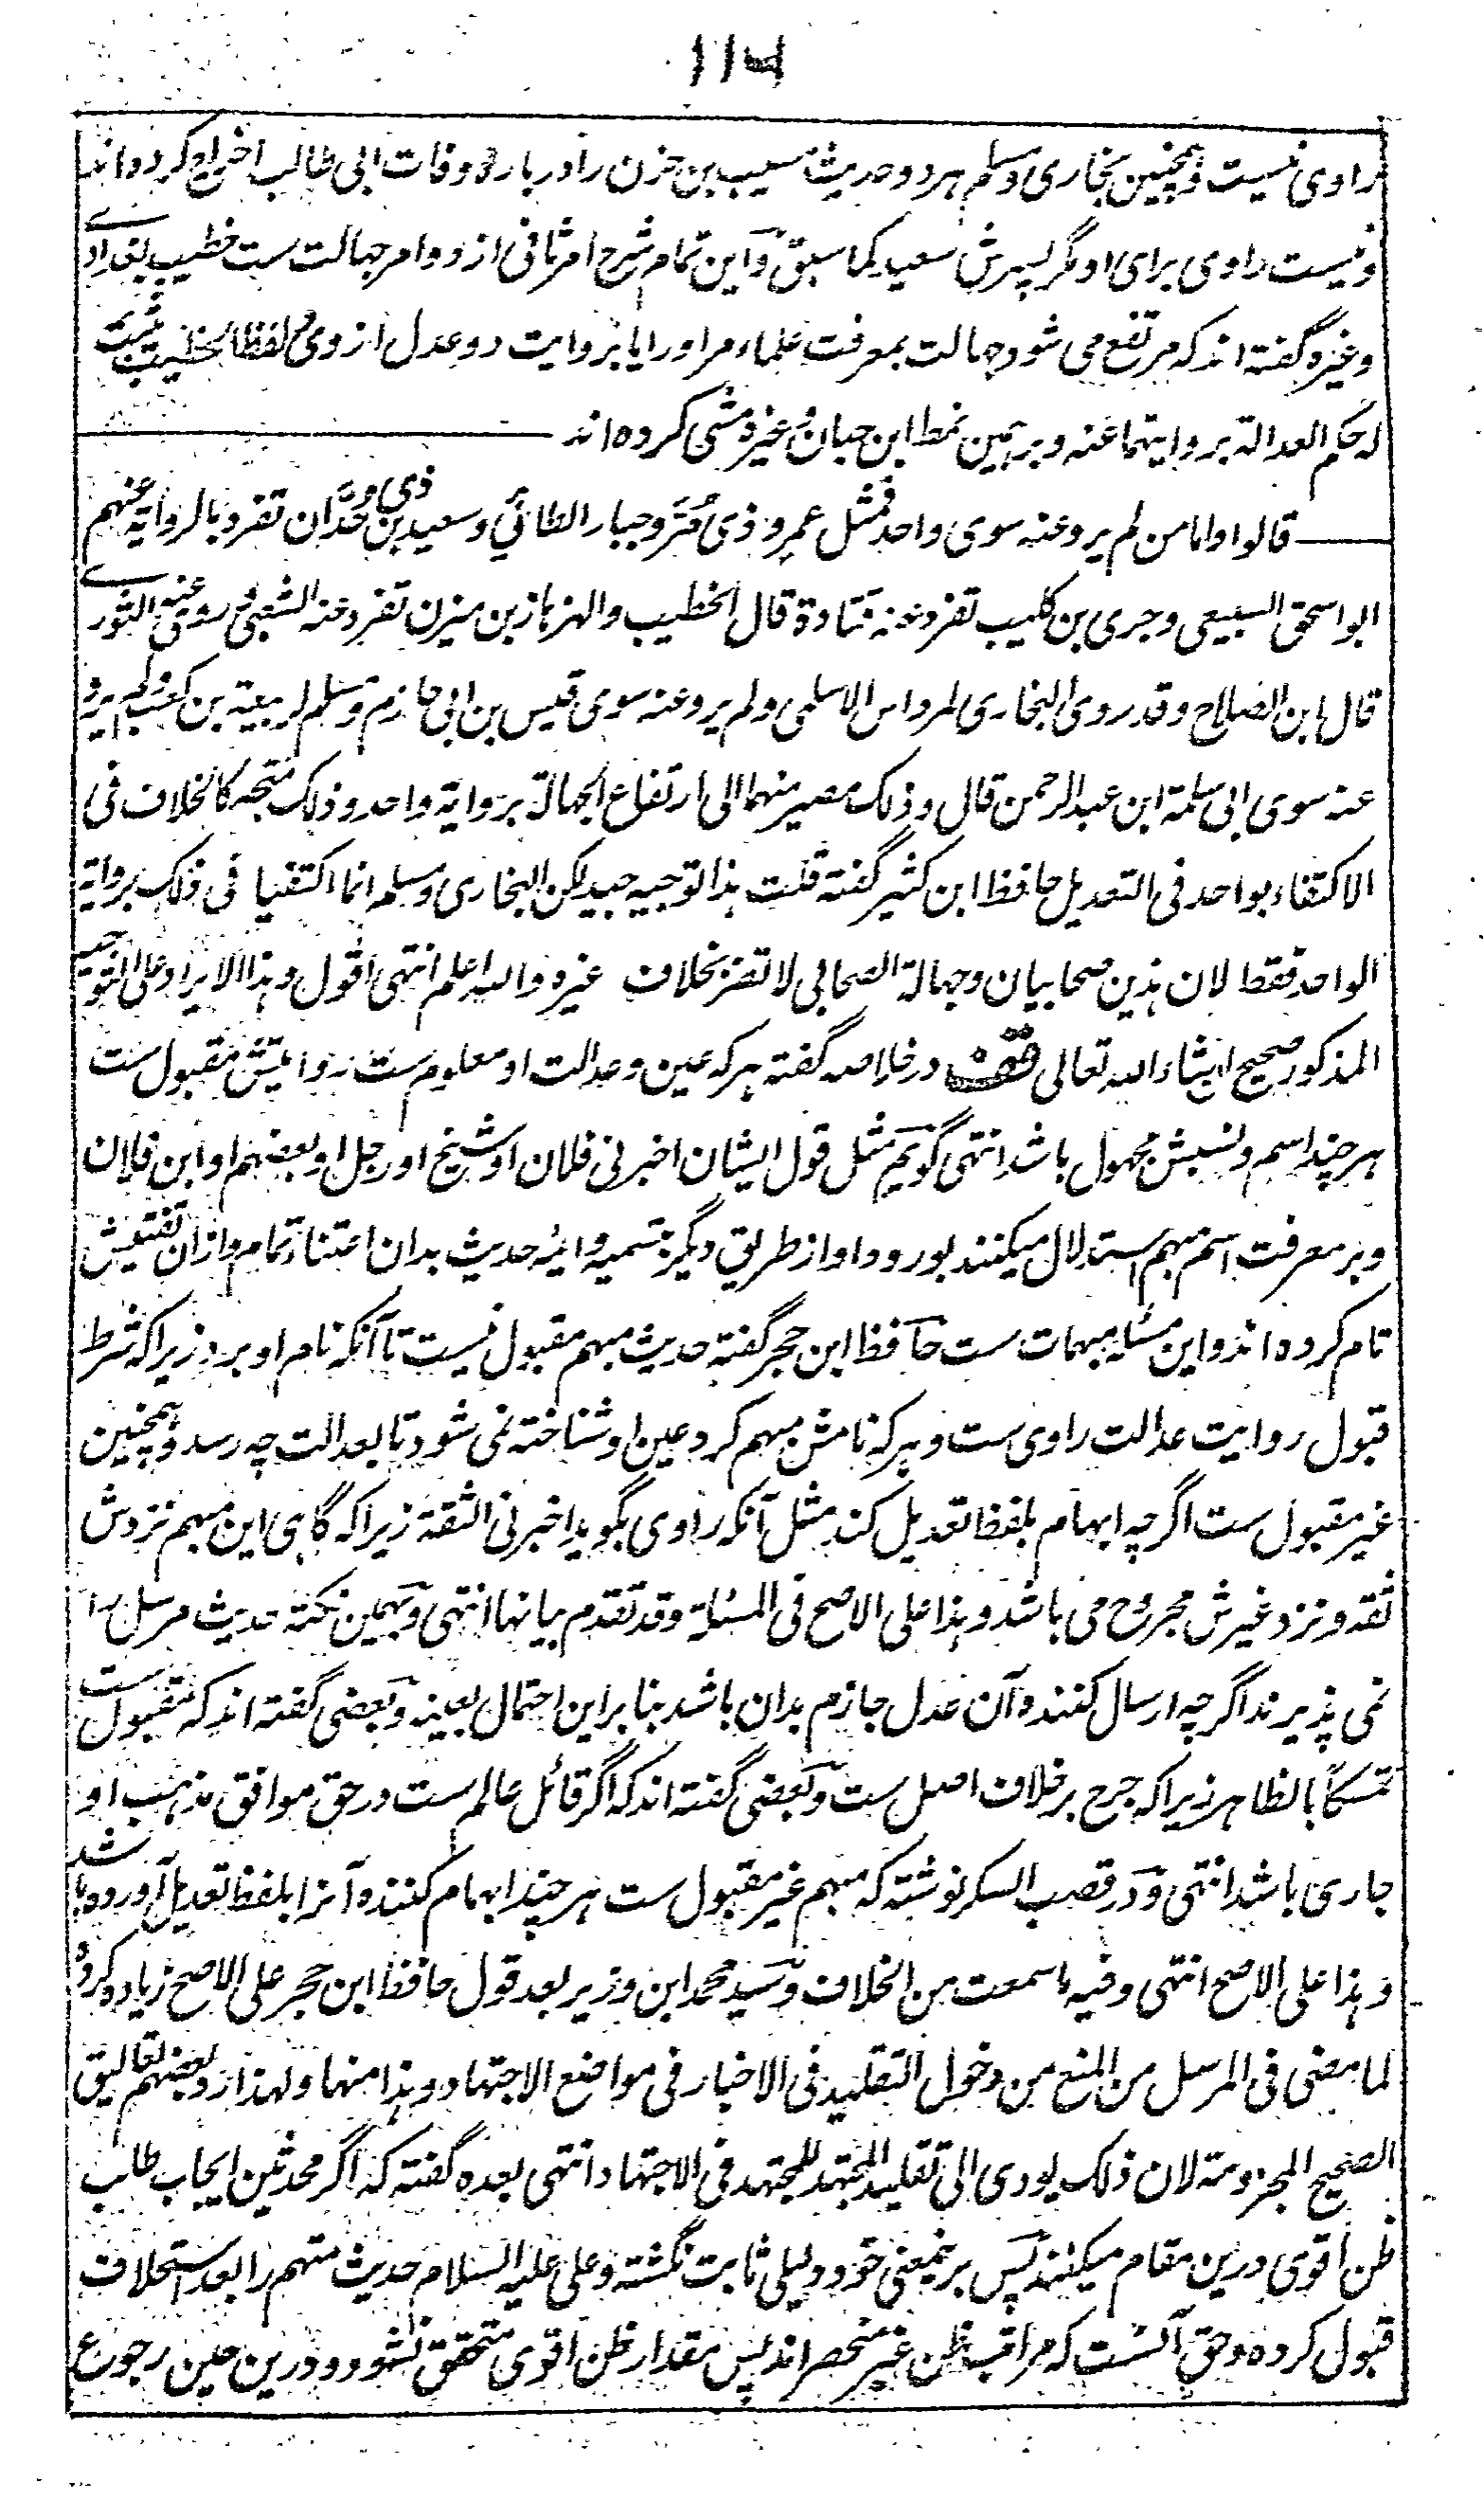 ۱۱۶
راوی نیست و همچنین بخاری و مسلم هر دو حدیث مسیب بن حزن را در باره وفات ابی طالب اخراج کرده اند
و نیست راوی برای او مگر پسرش سعید کما سبق و این تمام شرح امر ثانی از دو امر جهالت ست خطیب بغدادی
و غیره گفته اند که مرتفع می شود جهالت بمعرفت علماء مر او را یا بروایت دو عدل از وی و لفظ الخطیب یثبت
له حکم العدالة بروایتهما عنه و بر همین نمط ابن حبان و غیره مشی کرده اند
قالوا و اما من لم یرو عنه سوی واحد فمثل عمرو ذی مُرّ و جبار الطائی و سعید بن ذی حُدّان تفرد بالروایة عنهم
ابو اسحق السبیعی و جری بن کلیب تفرد عنه قتادة قال الخطیب و الهزهاز بن میزن تفرد عنه الشعبی روی عنه الثوری
قال ابن الصلاح و قد روی البخاری لمرداس الاسلمی و لم یرو عنه سوی قیس بن ابی حازم و مسلم لربیعة بن کعب و لم یرو
عنه سوی ابی سلمة ابن عبد الرحمن قال و ذلک مصیر منهما الی ارتفاع الجهالة بروایة واحد و ذلک متجه کالخلاف فی
الاکتفاء بواحد فی التعدیل حافظ ابن کثیر گفته قلت هذا توجیه جید لکن البخاری و مسلم انما اکتفیا فی ذلک بروایة
الواحد فقط لان هذین صحابیان و جهالة الصحابی لا تضر بخلاف غیره و الله اعلم انتهی اقول و هذا الایراد علی التوجیه
المذکور صحیح انشاء الله تعالی در خلاصه گفته هر که عین و عدالت او معلوم ست روایتش مقبول ست
هر چند اسم و نسبش مجهول باشد انتهی گویم مثل قول ایشان اخبرنی فلان او شیخ او رجل او بعضهم او ابن فلان
و بر معرفت اسم مبهم استدلال میکنند بورود او از طریق دیگر تسمیه و ائمه حدیث بدان اعتناء تمام و ازان تفتیش
تام کرده اند و این مسئله مبهمات ست حافظ ابن حجر گفته حدیث مبهم مقبول نیست تا آنکه نام او برد زیرا که شرط
قبول روایت عدالت راوی ست و هر که نامش مبهم کرد عین او شناخته نمی شود تا بعدالت چه رسد و همچنین
غیر مقبول ست اگر چه ابهام بلفظ تعدیل کند مثل آنکه راوی بگوید اخبرنی الثقة زیرا که گاهی این مبهم نزدش
ثقه و نزد غیرش مجروح می باشد و هذا علی الاصح فی المسئلة و قد تقدم بیانها انتهی و بهمین نکته حدیث مرسل را
نمی پذیرند اگر چه ارسال کننده آن عدل جازم بدان باشد بنابر این احتمال بعینه و بعضی گفته اند که مقبول ست
تمسکاً بالظاهر زیرا که جرح بر خلاف اصل ست و بعضی گفته اند که اگر قائل عالم ست در حق موافق مذهب او
جاری باشد انتهی و در قصب السکر نوشته که مبهم غیر مقبول ست هر چند ابهام کننده آنرا بلفظ تعدیل آورده باشد
و هذا علی الاصح انتهی و فیه ما سمعت من الخلاف و سید محمد ابن وزیر بعد قول حافظ ابن حجر علی الاصح زیاده کرده
لما مضی فی المرسل من المنع من دخول التقلید فی الاخبار فی مواضع الاجتهاد و هذا منها و لهذا رد بعضهم تعالیق
الصحیح المجزومة لان ذلک یودی الی تقلید المجتهد للمجتهد فی الاجتهاد انتهی بعده گفته که اگر محدثین ایجاب طلب
ظن اقوی درین مقام میکنند پس بر یمعنی خود دلیلی ثابت نگشته و علی علیه السلام حدیث متهم را بعد استحلاف
قبول کرده و حق آنست که مراتب ظن غیر منحصر اند پس مقدار ظن اقوی متحقق نشود و درین حین رجوع